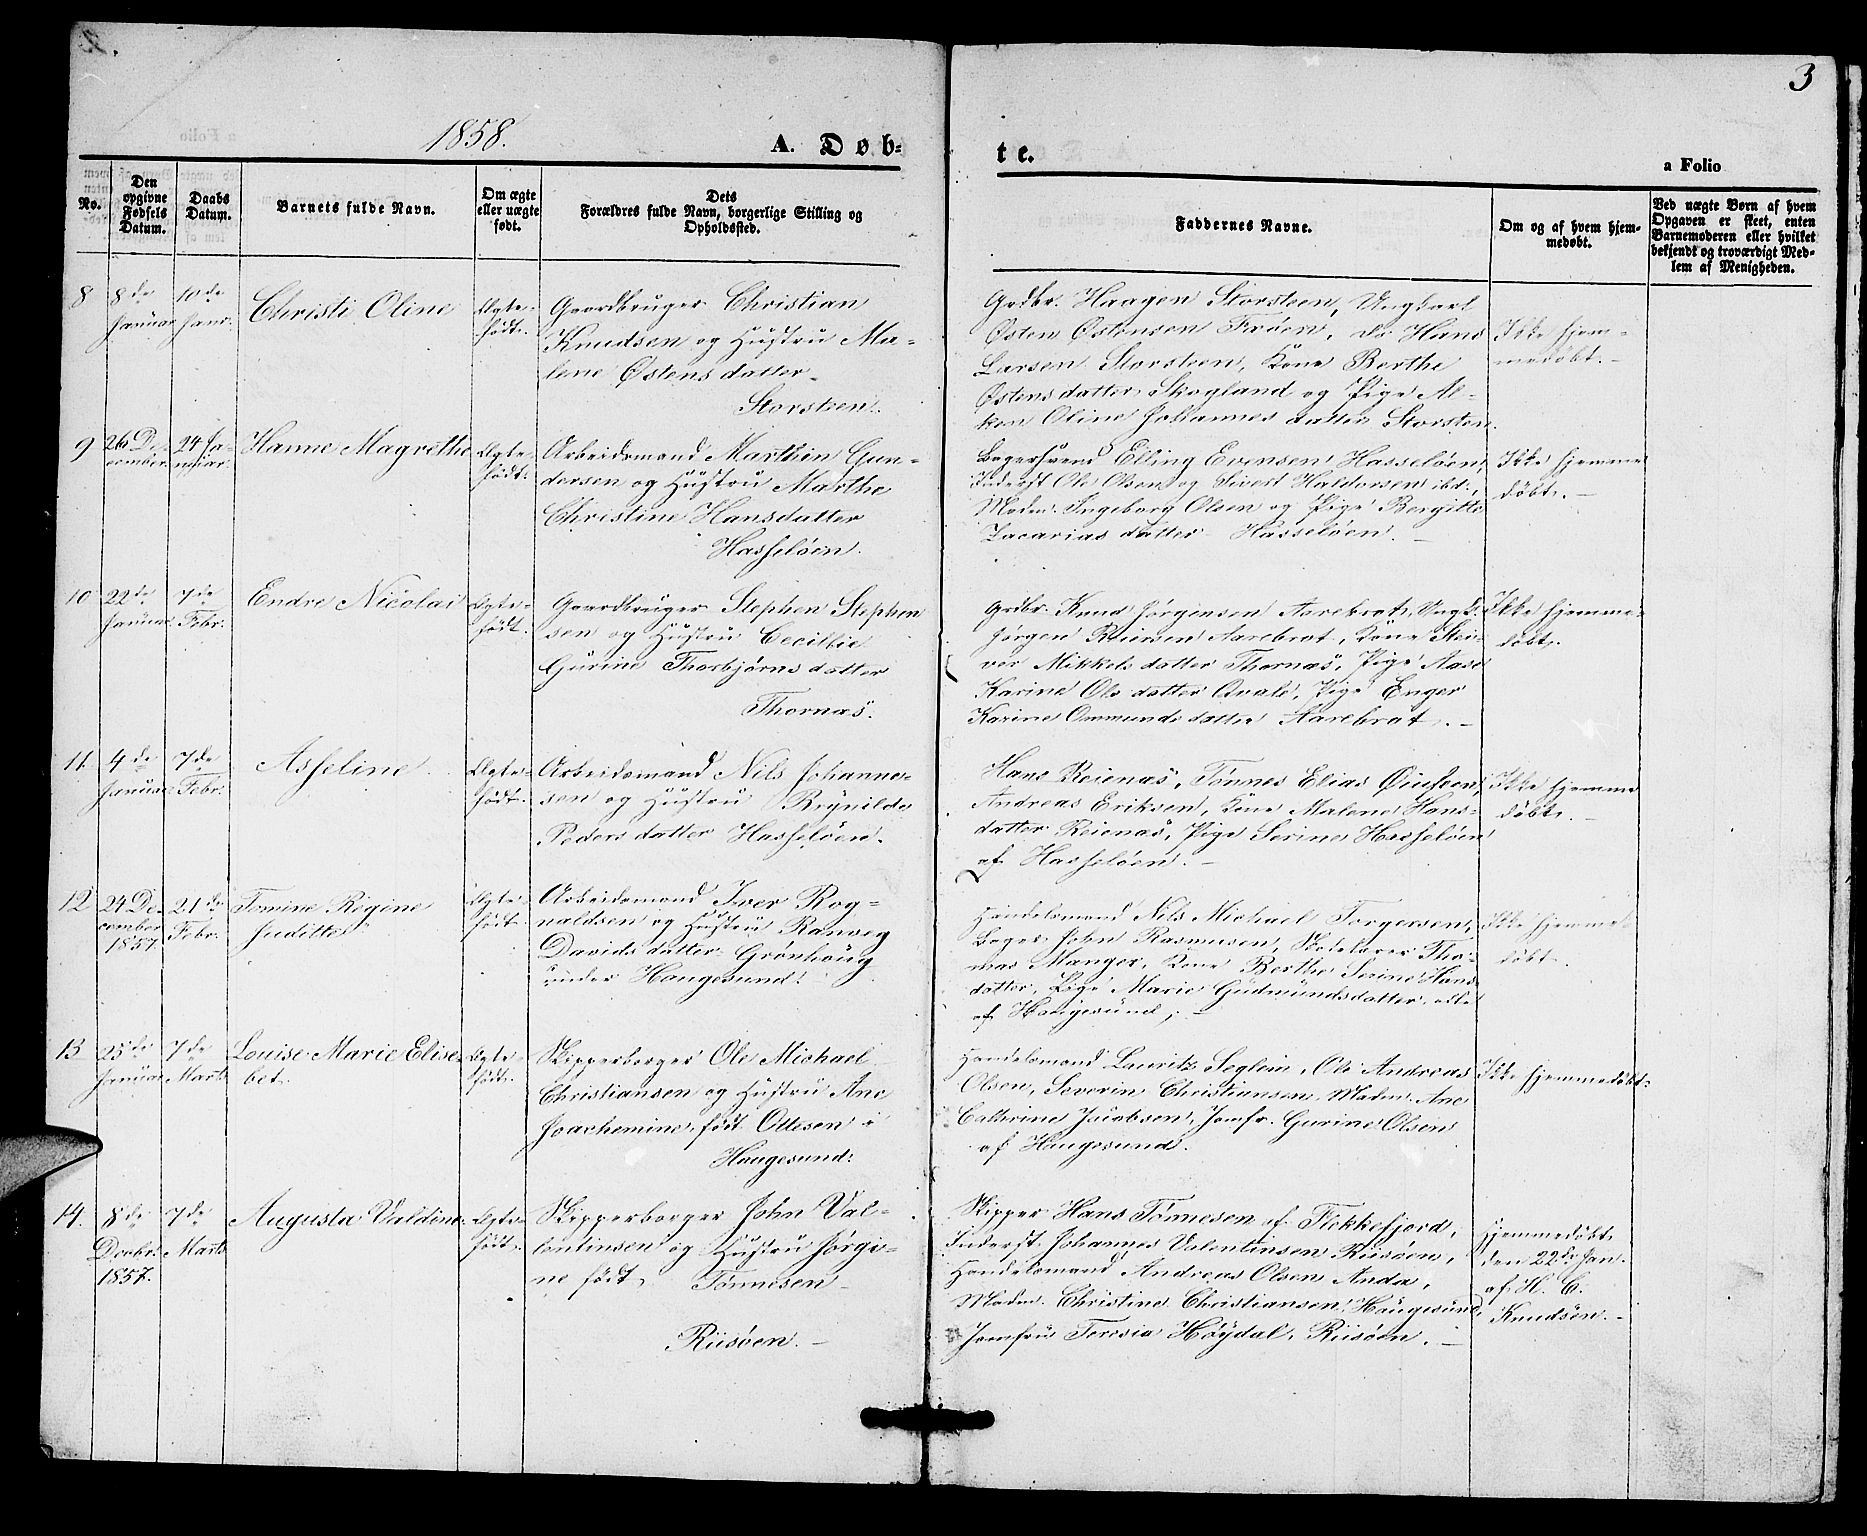 3
1858.
A. Døb-
te.
a Folio
No.
Den opgivne Fødsels Datum.
Daabs Datum.
Barnets fulde Navn.
Om ægte eller uægte født.
Dets Forældres fulde Navn, borgerlige Stilling og Opholdssted.
Faddernes Navne.
Om og af hvem hjem-medøbt.
Ved uægte Børn af hvem Opgaven er skeet, enten Barnemoderen eller hvilket bekjendt og troværdigt Med-lem af Menigheden.
8
8de Januar
10de Janr.
Christi Oline
Ægte-født.
Gaardbruger Christian
Knudsen og Hustru Ma-
lene Østensdatter
Storsteen.
Grdbr. Haagen Storsteen, Ungkarl
Østen Østensen Frøen, do Hans
Larsen Storsteen, Kone Berthe
Østensdatter Skogland og Pige Al-
ken Oline Johannesdatter Storsten.
Ikke hjem-
medøbt.
9
26 De-
cember.
24 Ja-
nuar.
Hanne Magrethe
Ægte-født.
Arbeidsmand Marthin Gun-
dersen og Hustru Marthe
Christine Hansdatter
Hasseløen.
Bagersvend Elling Evensen Hasseløen,
Inderst Ole Olsen og Sivert Haldorsen ibd.,
Madm. Ingeborg Olsen og Pige Bergitte
Zacariasdatter Hasseløen.
Ikke hjemme
døbt.
10
22de Januar
7de Febr.
Endre Nicolai
Ægte-født.
Gaardbruger Stephen Stephen
sen og Hustru Cecillie
Gurine Thorbjørnsdatter
Thornæs.
Grdbr. Knud Jørgensen Aarebrot, Ungk.
Jørgen Reiersen Aarebrot, Kone Sei-
vor Mikkelsdatter Thornæs, Pige Aase
Karine Olsdatter Qvale, Pige Enger
Karine Ommundsdatter Aarebrot.
Ikke hjemme-
døbt.
11.
4de Januar
7de Febr.
Asseline
Ægte-født.
Arbeidsmand Nils Johanne-
sen og Hustru Brynilde
Pedersdatter Hasseløen.
Hans Reienæs, Tønnes Elias
Andreas Eriksen, Kone Malene Hans-
datter Reienæs, Pige Serine Hasseløen
af Hasseløen.
Ikke hjemme
døbt.
12
24 De-
cember
1857.
21de Febr.
Tomine Regine
Juditte
Ægte-født.
Arbeidsmand Iver Rog-
naldsen og Hustru Ranveg
Davidsdatter Grønhoug
under Haugesund.
Handelsmand Nils Michael Torgersen,
Bager John Rasmusen, Skolelærer Tho-
mas Manger, Kone Berthe Serine Hans-
datter, Pige Marie Gudmundsdatter, alle
af Haugesund.
Ikke hjemme-
døbt.
13
25de Januar
7de Marts
Louise Marie Elise-
bet.
Ægte-født.
Skipperborger Ole Michael
Christiansen og Hustru Ane
Joachemine, født Ottesen i
Haugesund.
Handelsmand Lauritz Seglem, Ole Andreas
Olsen, Severin Christiansen, Madm. Ane
Cathrine Jacobsen, Jomfr. Gurine Olsen
af Haugesund.
Ikke hjemmedøbt.
14.
8de
Decbr.
1857.
7de Marts
Augusta Valdine.
Ægte-født.
Skipperborger John Val-
lentinsen og Hustru Jørgi-
ne født Tønnesen
Riisøen.
Skipper Hans Tønnesen af Flekkefjord,
Inderst Johannes Valentinsen Riisøen,
Handelsmand Andreas Olsen Anda,
Madm. Christine Christiansen, Haugesund,
Jomfru Teresia Høydal, Riisøen.
Hjemmedøbt
den 22de Jan.
af H. C.
Knudsen.